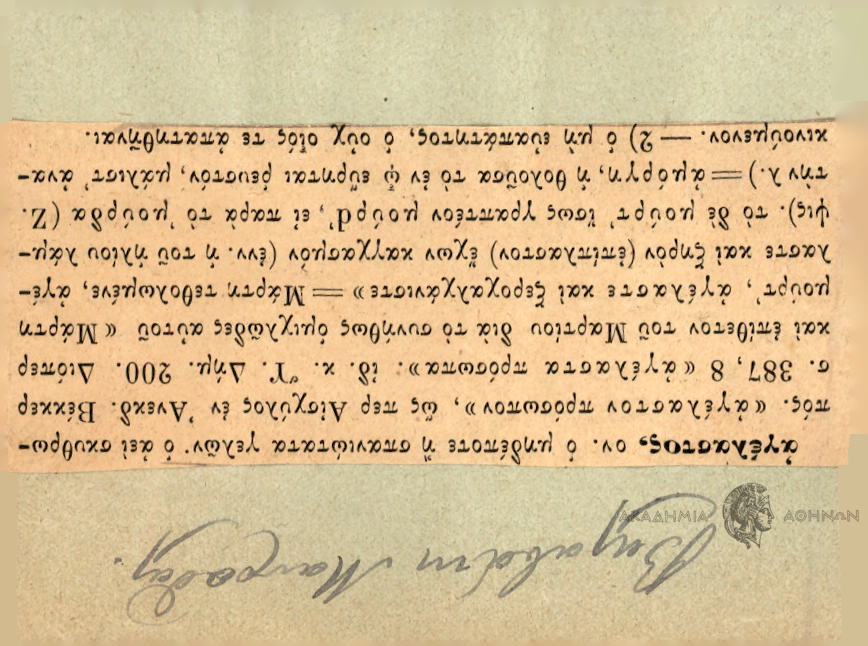 ἀγέλαστος, ον. ὁ μηδέποτε ἢ σπανιώτατα γελῶν· ὁ ἀεὶ σκυθρω-
πός. «ἀγέλαστον πρόσωπον», ὥς περ Αἰσχύλος ἐν Ἀνεκδ. Βέκκερ
σ. 387, 8 «ἀγέλαστα πρόσωπα». ἰδ. κ. Ὕ. Δήμ. 200. Διόπερ
καὶ ἐπίθετον τοῦ Μαρτίου διὰ τὸ συνήθως ὁμιχλῶδες αὐτοῦ «Μάρτη
μούρτ', ἀγέλαστε καὶ ξεροχαλχάνιστε» = Μάρτη τεθολωμένε, ἀγέ-
λαστε καὶ ξηρὸν (ἐπίπλαστον) ἔχων καγχασμὸν (ἐνν. ἡ τοῦ ἡλίου λάμ-
ψις). τὸ δὲ μούρτ' ἴσως γραπτέον μούρd', εἰ παρὰ τὸ 'μούρδα (Ζ.
τὴν λ.)=ἀμόργη, ἡ θολοῦσα τὸ ἐν ᾧ εὕρηται ῥευστόν, μάλιστ' ἀνα-
κινούμενον. — 2) ὁ μὴ εὐαπάτητος, ὁ οὐχ οἷός τε ἀπατηθῆναι.
ΑΚΑΔΗΜΙΑ ΑΘΗΝΩΝ